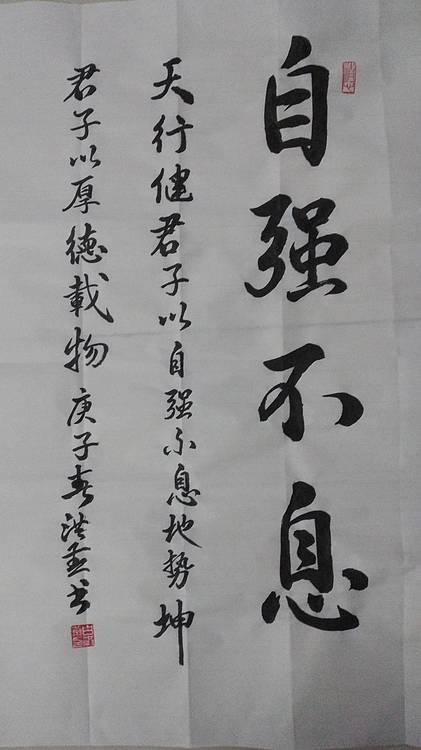 自强不息
天行健君子以自强不息地势坤
君子以厚德載物 庚子春洪燕书